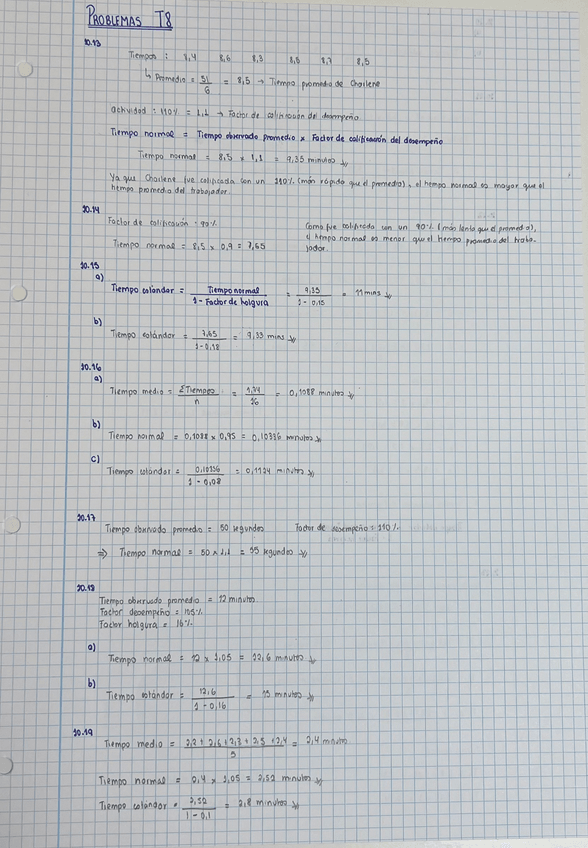 PROBLEMAS T8
10.13
Tiempos : 8,4 8,6 8,3 8,5 8,7 8,5
↳ Promedio = 51/6 = 8,5 → Tiempo promedio de Charlene
actividad : 110% = 1,1 → Factor de calificación del desempeño
Tiempo normal = Tiempo observado promedio x Factor de calificación del desempeño
Tiempo normal = 8,5 x 1,1 = 9,35 minutos
Ya que Charlene fue calificada con un 110% (más rápido que el promedio), el tiempo normal es mayor que el
tiempo promedio del trabajador.
10.14
Factor de calificación = 90%
Tiempo normal = 8,5 x 0,9 = 7,65
Como fue calificado con un 90% (más lento que el promedio),
el tiempo normal es menor que el tiempo promedio del traba-
jador.
10.15
a)
Tiempo estándar = Tiempo normal / 1 - Factor de holgura = 9,35 / 1 - 0,15 = 11 mins
b)
Tiempo estándar = 7,65 / 1 - 0,18 = 9,33 mins
10.16
a)
Tiempo medio = ΣTiempos / n = 1,74 / 16 = 0,1088 minutos
b)
Tiempo normal = 0,1088 x 0,95 = 0,10336 minutos
c)
Tiempo estándar = 0,10336 / 1 - 0,08 = 0,1124 minutos
10.17
Tiempo observado promedio = 50 segundos Factor de desempeño = 110%
⇒ Tiempo normal = 50 x 1,1 = 55 segundos
10.18
Tiempo observado promedio = 12 minutos
Factor desempeño = 105%
Factor holgura = 16%
a)
Tiempo normal = 12 x 1,05 = 12,6 minutos
b)
Tiempo estándar = 12,6 / 1 - 0,16 = 15 minutos
10.19
Tiempo medio = 2,2 + 2,6 + 2,3 + 2,5 + 2,4 / 5 = 2,4 minutos
Tiempo normal = 2,4 x 1,05 = 2,52 minutos
Tiempo estandar = 2,52 / 1 - 0,1 = 2,8 minutos